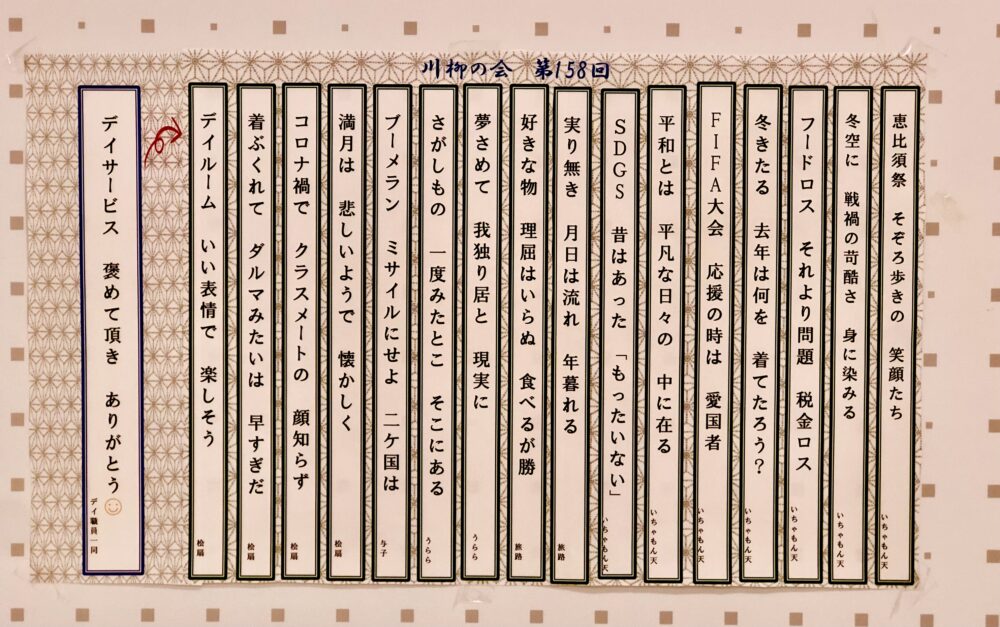 川柳の会　第158回
恵比須祭　そぞろ歩きの　笑顔たち
いちゃもん天
冬空に　戦禍の苛酷さ　身に染みる
いちゃもん天
フードロス　それより問題　税金ロス
いちゃもん天
冬きたる　去年は何を　着てたろう？
いちゃもん天
FIFA大会　応援の時は　愛国者
いちゃもん天
平和とは　平凡な日々の　中に在る
いちゃもん天
SDGS　昔はあった　「もったいない」
いちゃもん天
実り無き　月日は流れ　年暮れる
旅路
好きな物　理屈はいらぬ　食べるが勝
旅路
夢さめて　我独り居と　現実に
うらら
さがしもの　一度みたとこ　そこにある
うらら
ブーメラン　ミサイルにせよ　二ケ国は
与子
満月は　悲しいようで　懐かしく
桧扇
コロナ禍で　クラスメートの　顔知らず
桧扇
着ぶくれて　ダルマみたいは　早すぎだ
桧扇
デイルーム　いい表情で　楽しそう
桧扇
デイサービス　褒めて頂き　ありがとう
デイ職員一同